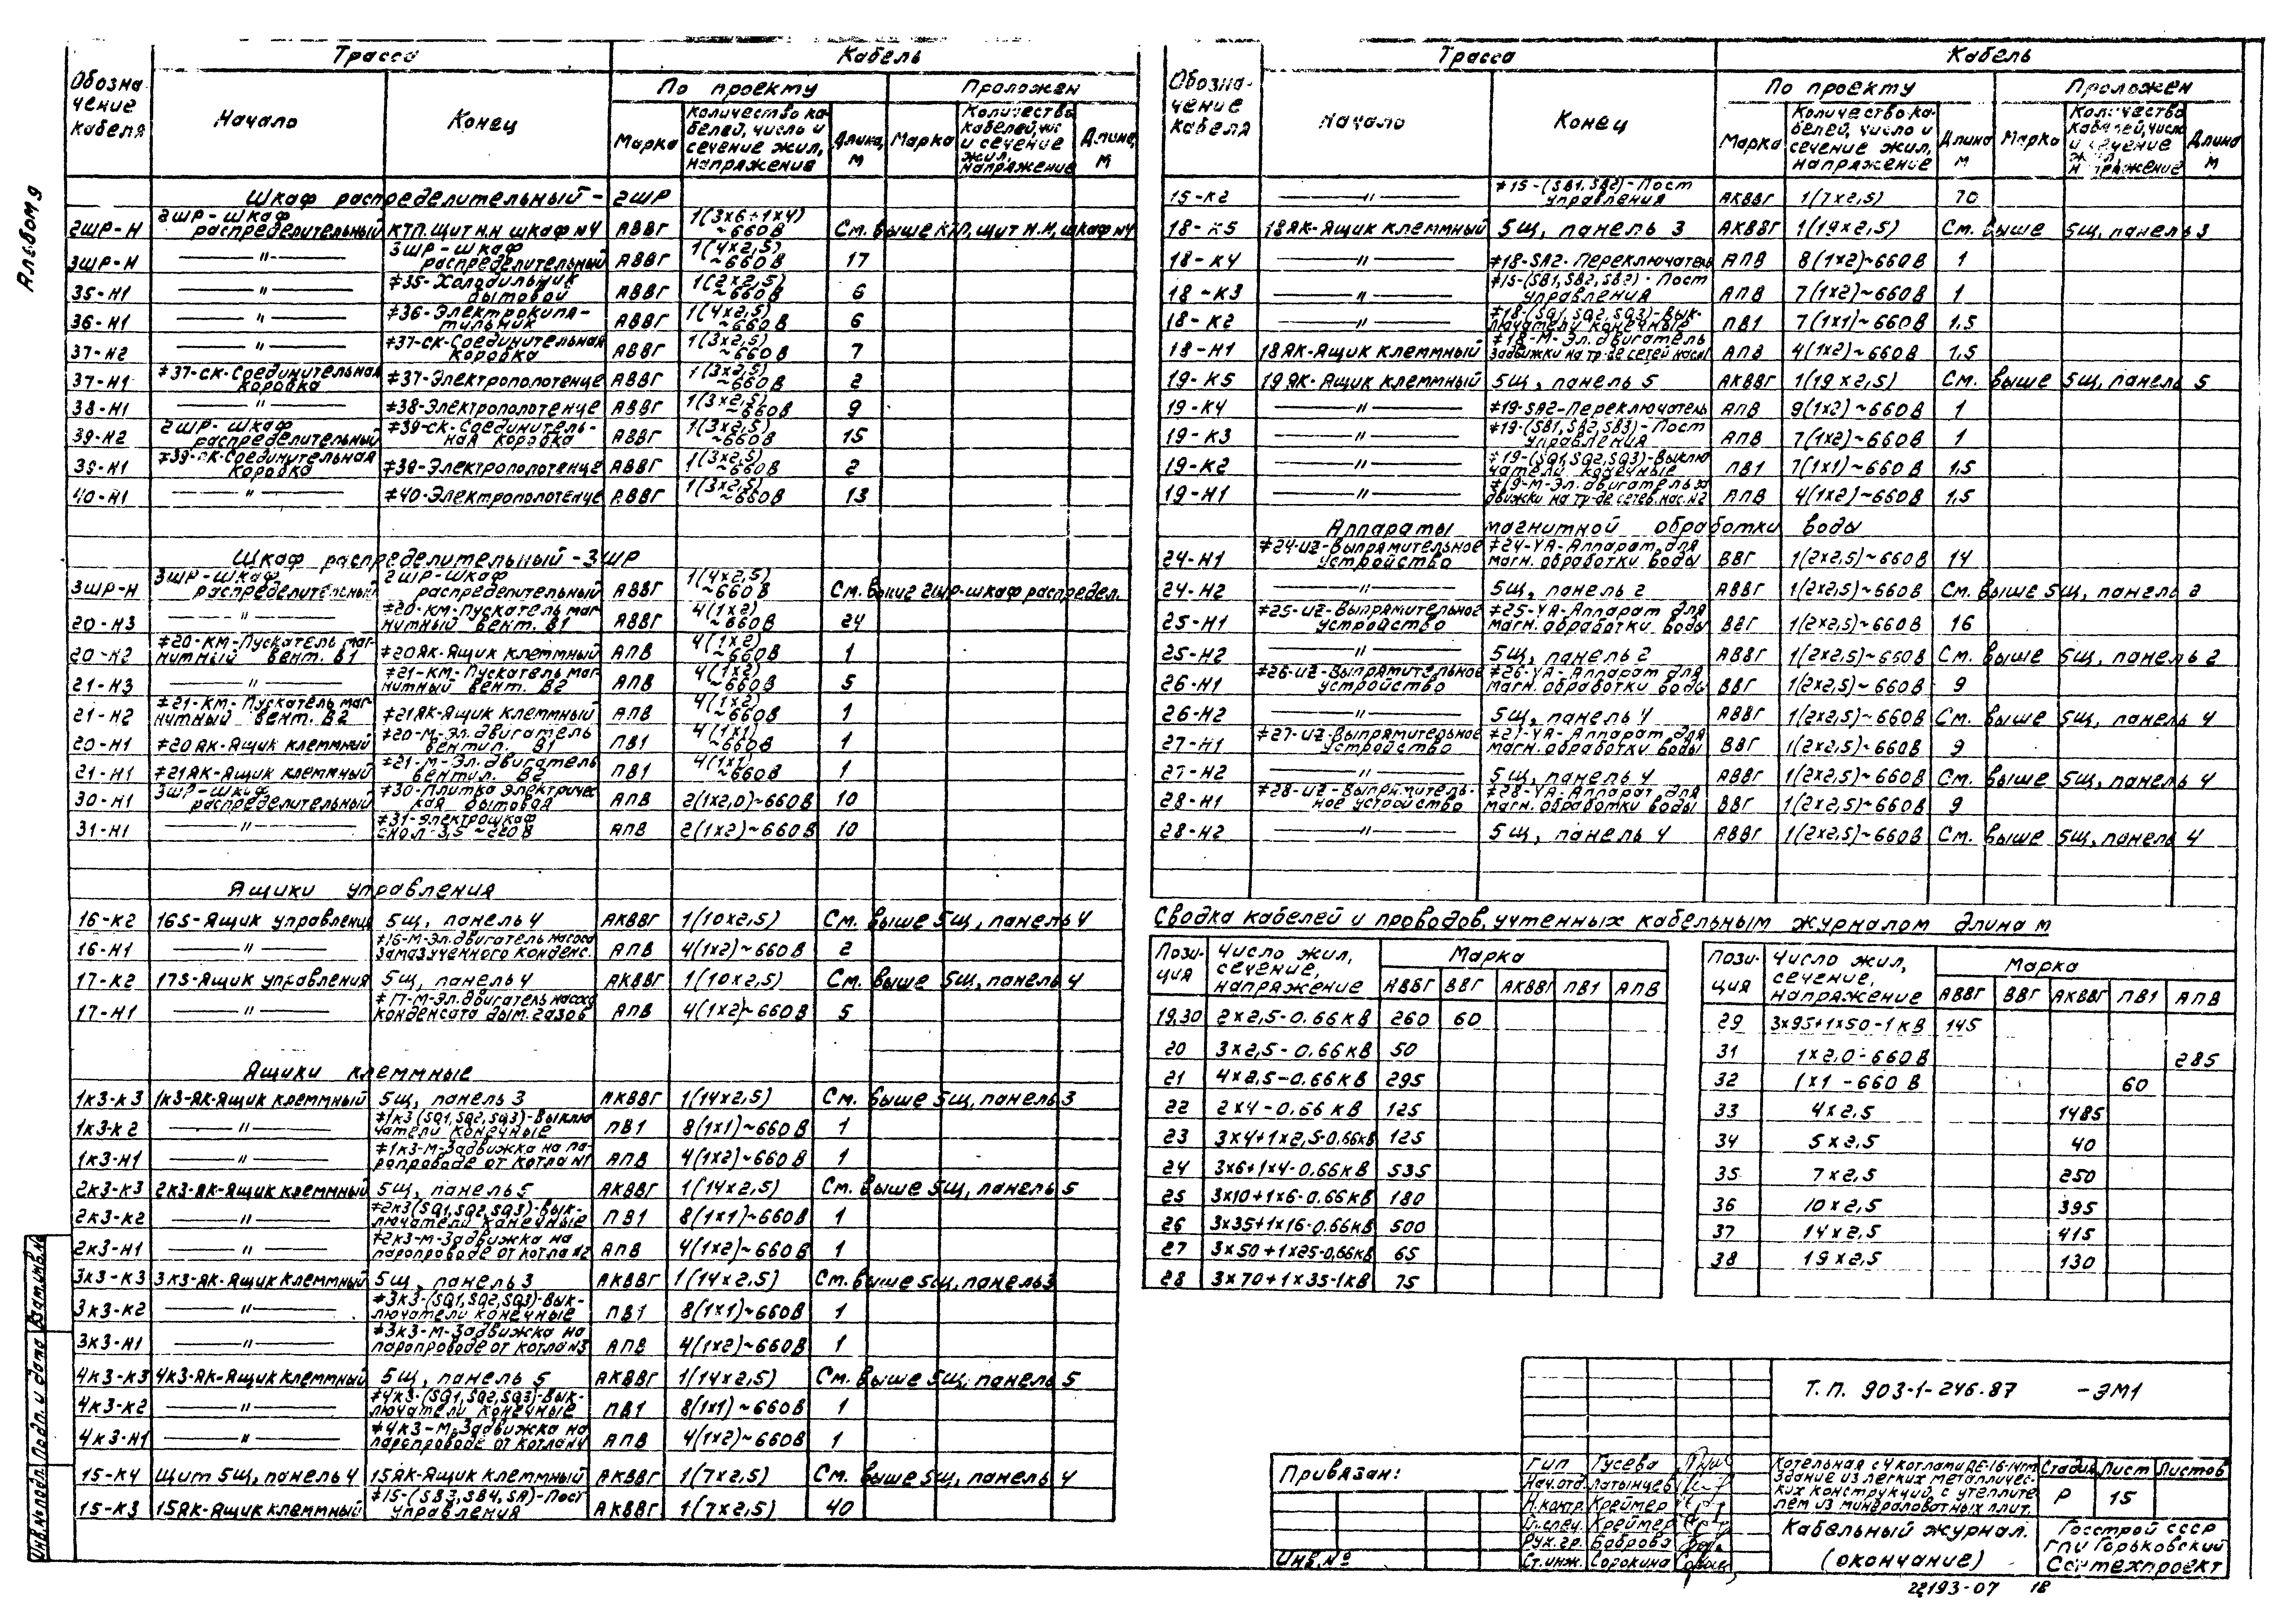 Альбом 9
Обозначение кабеля | Трасса | Кабель
Начало | Конец | По проекту | Проложен
Марка | Количество кабелей, число и сечение жил, напряжение | Длина, м | Марка | Количество кабелей, число и сечение жил, напряжение | Длина, м
Шкаф распределительный - 2ШР
2ШР-Н | 2ШР-шкаф распределительный | КТП. Щит Н.Н шкаф №4 | АВВГ | 1(3х6+1х4) ~660В | См. выше КТП, щит Н.Н, шкаф №4
3ШР-Н | —"— | 3ШР-шкаф распределительный | АВВГ | 1(4х2,5) ~660В | 17
35-Н1 | —"— | #35-Холодильник бытовой | АВВГ | 1(2х2,5) ~660В | 6
36-Н1 | —"— | #36-Электрокипятильник | АВВГ | 1(4х2,5) ~660В | 6
37-Н2 | —"— | #37-СК-Соединительная коробка | АВВГ | 1(3х2,5) ~660В | 7
37-Н1 | #37-СК-Соединительная коробка | #37-Электрополотенце | АВВГ | 1(3х2,5) ~660В | 2
38-Н1 | —"— | #38-Электрополотенце | АВВГ | 1(3х2,5) ~660В | 9
39-Н2 | 2ШР-шкаф распределительный | #39-СК-Соединительная коробка | АВВГ | 1(3х2,5) ~660В | 15
39-Н1 | #39-СК-Соединительная коробка | #39-Электрополотенце | АВВГ | 1(3х2,5) ~660В | 2
40-Н1 | —"— | #40-Электрополотенце | АВВГ | 1(3х2,5) ~660В | 13
Шкаф распределительный - 3ШР
3ШР-Н | 3ШР-шкаф распределительный | 2ШР-шкаф распределительный | АВВГ | 1(4х2,5) ~660В | См. выше 2ШР-шкаф распредел.
20-Н3 | —"— | #20-КМ-Пускатель магнитный вент. В1 | АВВГ | 4(1х2) ~660В | 24
20-Н2 | #20-КМ-Пускатель магнитный вент. В1 | #20АК-Ящик клеммный | АПВ | 4(1х2) ~660В | 1
21-Н3 | —"— | #21-КМ-Пускатель магнитный вент. В2 | АПВ | 4(1х2) ~660В | 5
21-Н2 | #21-КМ-Пускатель магнитный вент. В2 | #21АК-Ящик клеммный | АПВ | 4(1х2) ~660В | 1
20-Н1 | #20АК-Ящик клеммный | #20-М-Эл. двигатель вентил. В1 | ПВ1 | 4(1х1) ~660В | 1
21-Н1 | #21АК-Ящик клеммный | #21-М-Эл. двигатель вентил. В2 | ПВ1 | 4(1х1) ~660В | 1
30-Н1 | 3ШР-шкаф распределительный | #30-Плитка электрическая бытовая | АПВ | 2(1х2,0)~660В | 10
31-Н1 | —"— | #31-Электрошкаф СНОЛ-3,5 ~220В | АПВ | 2(1х2)~660В | 10
Ящики управления
16-К2 | 16S-Ящик управления | 5Щ, панель 4 | АКВВГ | 1(10х2,5) | См. выше 5Щ, панель 4
16-Н1 | —"— | #16-М-Эл. двигатель насоса замазученного конденс. | АПВ | 4(1х2)~660В | 2
17-К2 | 17S-Ящик управления | 5Щ, панель 4 | АКВВГ | 1(10х2,5) | См. выше 5Щ, панель 4
17-Н1 | —"— | #17-М-Эл. двигатель насоса конденсата дым. газов | АПВ | 4(1х2)~660В | 5
Ящики клеммные
1К3-К3 | 1К3-АК-Ящик клеммный | 5Щ, панель 3 | АКВВГ | 1(14х2,5) | См. выше 5Щ, панель 3
1К3-К2 | —"— | #1К3(SQ1,SQ2,SQ3)-Выключатели конечные | ПВ1 | 8(1х1)~660В | 1
1К3-Н1 | —"— | #1К3-М-Задвижка на паропроводе от котла №1 | АПВ | 4(1х2)~660В | 1
2К3-К3 | 2К3-АК-Ящик клеммный | 5Щ, панель 5 | АКВВГ | 1(14х2,5) | См. выше 5Щ, панель 5
2К3-К2 | —"— | #2К3(SQ1,SQ2,SQ3)-Выключатели конечные | ПВ1 | 8(1х1)~660В | 1
2К3-Н1 | —"— | #2К3-М-Задвижка на паропроводе от котла №2 | АПВ | 4(1х2)~660В | 1
3К3-К3 | 3К3-АК-Ящик клеммный | 5Щ, панель 3 | АКВВГ | 1(14х2,5) | См. выше 5Щ, панель 3
3К3-К2 | —"— | #3К3-(SQ1,SQ2,SQ3)-Выключатели конечные | ПВ1 | 8(1х1)~660В | 1
3К3-Н1 | —"— | #3К3-М-Задвижка на паропроводе от котла №3 | АПВ | 4(1х2)~660В | 1
4К3-К3 | 4К3-АК-Ящик клеммный | 5Щ, панель 5 | АКВВГ | 1(14х2,5) | См. выше 5Щ, панель 5
4К3-К2 | —"— | #4К3-(SQ1,SQ2,SQ3)-Выключатели конечные | ПВ1 | 8(1х1)~660В | 1
4К3-Н1 | —"— | #4К3-М-Задвижка на паропроводе от котла №4 | АПВ | 4(1х2)~660В | 1
15-К4 | Щит 5Щ, панель 4 | 15АК-Ящик клеммный | АКВВГ | 1(7х2,5) | См. выше 5Щ, панель 4
15-К3 | 15АК-Ящик клеммный | #15-(SB3,SB4,SA)-Пост управления | АКВВГ | 1(7х2,5) | 40
Обозначение кабеля | Трасса | Кабель
Начало | Конец | По проекту | Проложен
Марка | Количество кабелей, число и сечение жил, напряжение | Длина м | Марка | Количество кабелей, число и сечение жил, напряжение | Длина м
15-К2 | —"— | #15-(SB1,SB2)-Пост управления | АКВВГ | 1(7х2,5) | 70
18-К5 | 18АК-Ящик клеммный | 5Щ, панель 3 | АКВВГ | 1(19х2,5) | См. выше 5Щ, панель 3
18-К4 | —"— | #18-SA2-Переключатель | АПВ | 8(1х2)~660В | 1
18-К3 | —"— | #15-(SB1,SB2,SB2)-Пост управления | АПВ | 7(1х2)~660В | 1
18-К2 | —"— | #18-(SQ1,SQ2,SQ3)-Выключатели конечные | ПВ1 | 7(1х1)~660В | 1,5
18-Н1 | 18АК-Ящик клеммный | #18-М-Эл. двигатель задвижки на тр-де сетей нас. №1 | АПВ | 4(1х2)~660В | 1,5
19-К5 | 19АК-Ящик клеммный | 5Щ, панель 5 | АКВВГ | 1(19х2,5) | См. выше 5Щ, панель 5
19-К4 | —"— | #19-SA2-Переключатель | АПВ | 9(1х2)~660В | 1
19-К3 | —"— | #19-(SB1,SB2,SB3)-Пост управления | АПВ | 7(1х2)~660В | 1
19-К2 | —"— | #19-(SQ1,SQ2,SQ3)-Выключатели конечные | ПВ1 | 7(1х1)~660В | 1,5
19-Н1 | —"— | #19-М-Эл. двигатель задвижки на тр-де сетев. нас. №2 | АПВ | 4(1х2)~660В | 1,5
Аппараты магнитной обработки воды
24-Н1 | #24-UZ-Выпрямительное устройство | #24-YA-Аппарат для магн. обработки воды | ВВГ | 1(2х2,5)~660В | 14
24-Н2 | —"— | 5Щ, панель 2 | АВВГ | 1(2х2,5)~660В | См. выше 5Щ, панель 2
25-Н1 | #25-UZ-Выпрямительное устройство | #25-YA-Аппарат для магн. обработки воды | ВВГ | 1(2х2,5)~660В | 16
25-Н2 | —"— | 5Щ, панель 2 | АВВГ | 1(2х2,5)~660В | См. выше 5Щ, панель 2
26-Н1 | #26-UZ-Выпрямительное устройство | #26-YA-Аппарат для магн. обработки воды | ВВГ | 1(2х2,5)~660В | 9
26-Н2 | —"— | 5Щ, панель 4 | АВВГ | 1(2х2,5)~660В | См. выше 5Щ, панель 4
27-Н1 | #27-UZ-Выпрямительное устройство | #27-YA-Аппарат для магн. обработки воды | ВВГ | 1(2х2,5)~660В | 9
27-Н2 | —"— | 5Щ, панель 4 | АВВГ | 1(2х2,5)~660В | См. выше 5Щ, панель 4
28-Н1 | #28-UZ-Выпрямительное устройство | #28-YA-Аппарат для магн. обработки воды | ВВГ | 1(2х2,5)~660В | 9
28-Н2 | —"— | 5Щ, панель 4 | АВВГ | 1(2х2,5)~660В | См. выше 5Щ, панель 4
Сводка кабелей и проводов, учтенных кабельным журналом длина м
Позиция | Число жил, сечение, напряжение | Марка
АВВГ | ВВГ | АКВВГ | ПВ1 | АПВ
19,30 | 2х2,5-0,66кВ | 260 | 60
20 | 3х2,5-0,66кВ | 50
21 | 4х2,5-0,66кВ | 295
22 | 2х4-0,66кВ | 125
23 | 3х4+1х2,5-0,66кВ | 125
24 | 3х6+1х4-0,66кВ | 535
25 | 3х10+1х6-0,66кВ | 180
26 | 3х35+1х16-0,66кВ | 500
27 | 3х50+1х25-0,66кВ | 65
28 | 3х70+1х35-1кВ | 75
Позиция | Число жил, сечение, напряжение | Марка
АВВГ | ВВГ | АКВВГ | ПВ1 | АПВ
29 | 3х95+1х50-1кВ | 145
31 | 1х2,0-660В | 285
32 | 1х1-660В | 60
33 | 4х2,5 | 1485
34 | 5х2,5 | 40
35 | 7х2,5 | 250
36 | 10х2,5 | 395
37 | 14х2,5 | 415
38 | 19х2,5 | 130
Т.П. 903-1-246.87 -ЭМ1
Привязан:
Инв.№
ГИП Гусева
Нач.отд. Латынцев
Н.контр. Креймер
Гл.спец. Креймер
Рук.гр. Боброва
Ст.инж. Сорокина
Котельная с 4 котлами ДЕ-16-14гм
Здание из легких металличес-
ких конструкций с утеплите-
лем из минераловатных плит.
Стадия | Лист | Листов
Р | 15
Кабельный журнал.
(окончание)
Госстрой СССР
ГПИ Горьковский
Сантехпроект
22193-07 18
Инв.№ подл. | Подп. и дата | Взам.инв.№